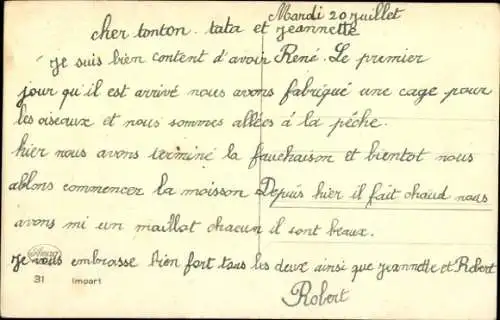 Mardi 20 juillet
cher tonton. tata et jeannette
je suis bien content d'avoir René. Le premier
jour qu'il est arrivé nous avons fabriqué une cage pour
les oiseaux et nous sommes allées á la pêche.
hier nous avons terminé la fauchaison et bientot nous
ablons commencer la moisson Depuis hier il fait chaud nous
avons mi un maillot chacun il sont beaux.
je vous embrasse bien fort tous les deux ainsi que jeannette et Robert
31 Import
Robert